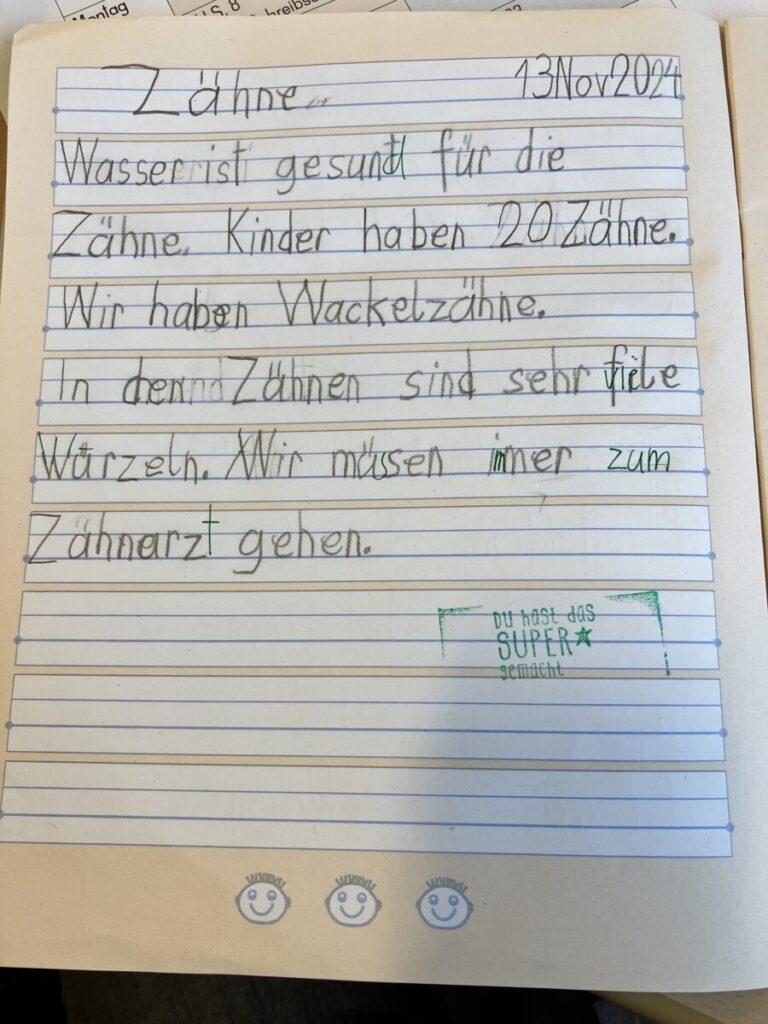 Montag
Zähne
13Nov2024
Wasser ist gesund für die
Zähne. Kinder haben 20 Zähne.
Wir haben Wackelzähne.
In den Zähnen sind sehr viele
Würzeln. Wir müssen immer zum
Zähnarzt gehen.
Du hast das
SUPER
gemacht!